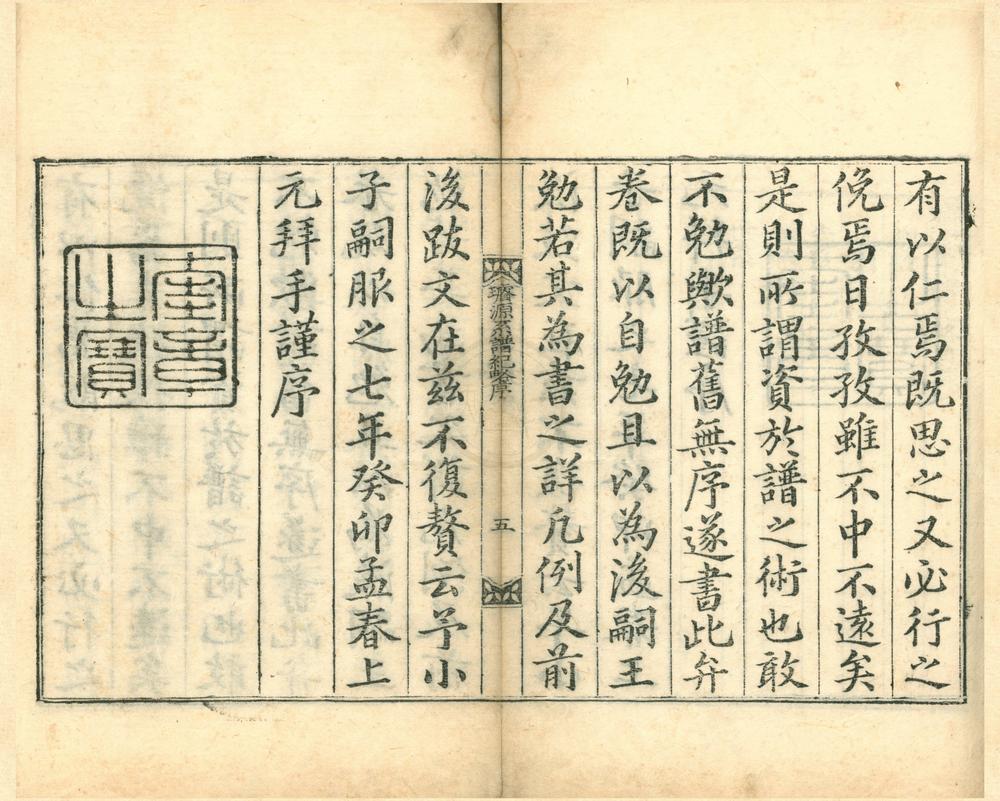 有以仁焉既思之又必行之
俛焉日孜孜雖不中不遠矣
是則所謂資於譜之術也敢
不勉歟譜舊無序遂書此弁
卷既以自勉且以為後嗣王
勉若其為書之詳凡例及前
璿源系譜紀畧序
五
後跋文在兹不復贅云予小
子嗣服之七年癸卯孟春上
元拜手謹序
奎章
之寶